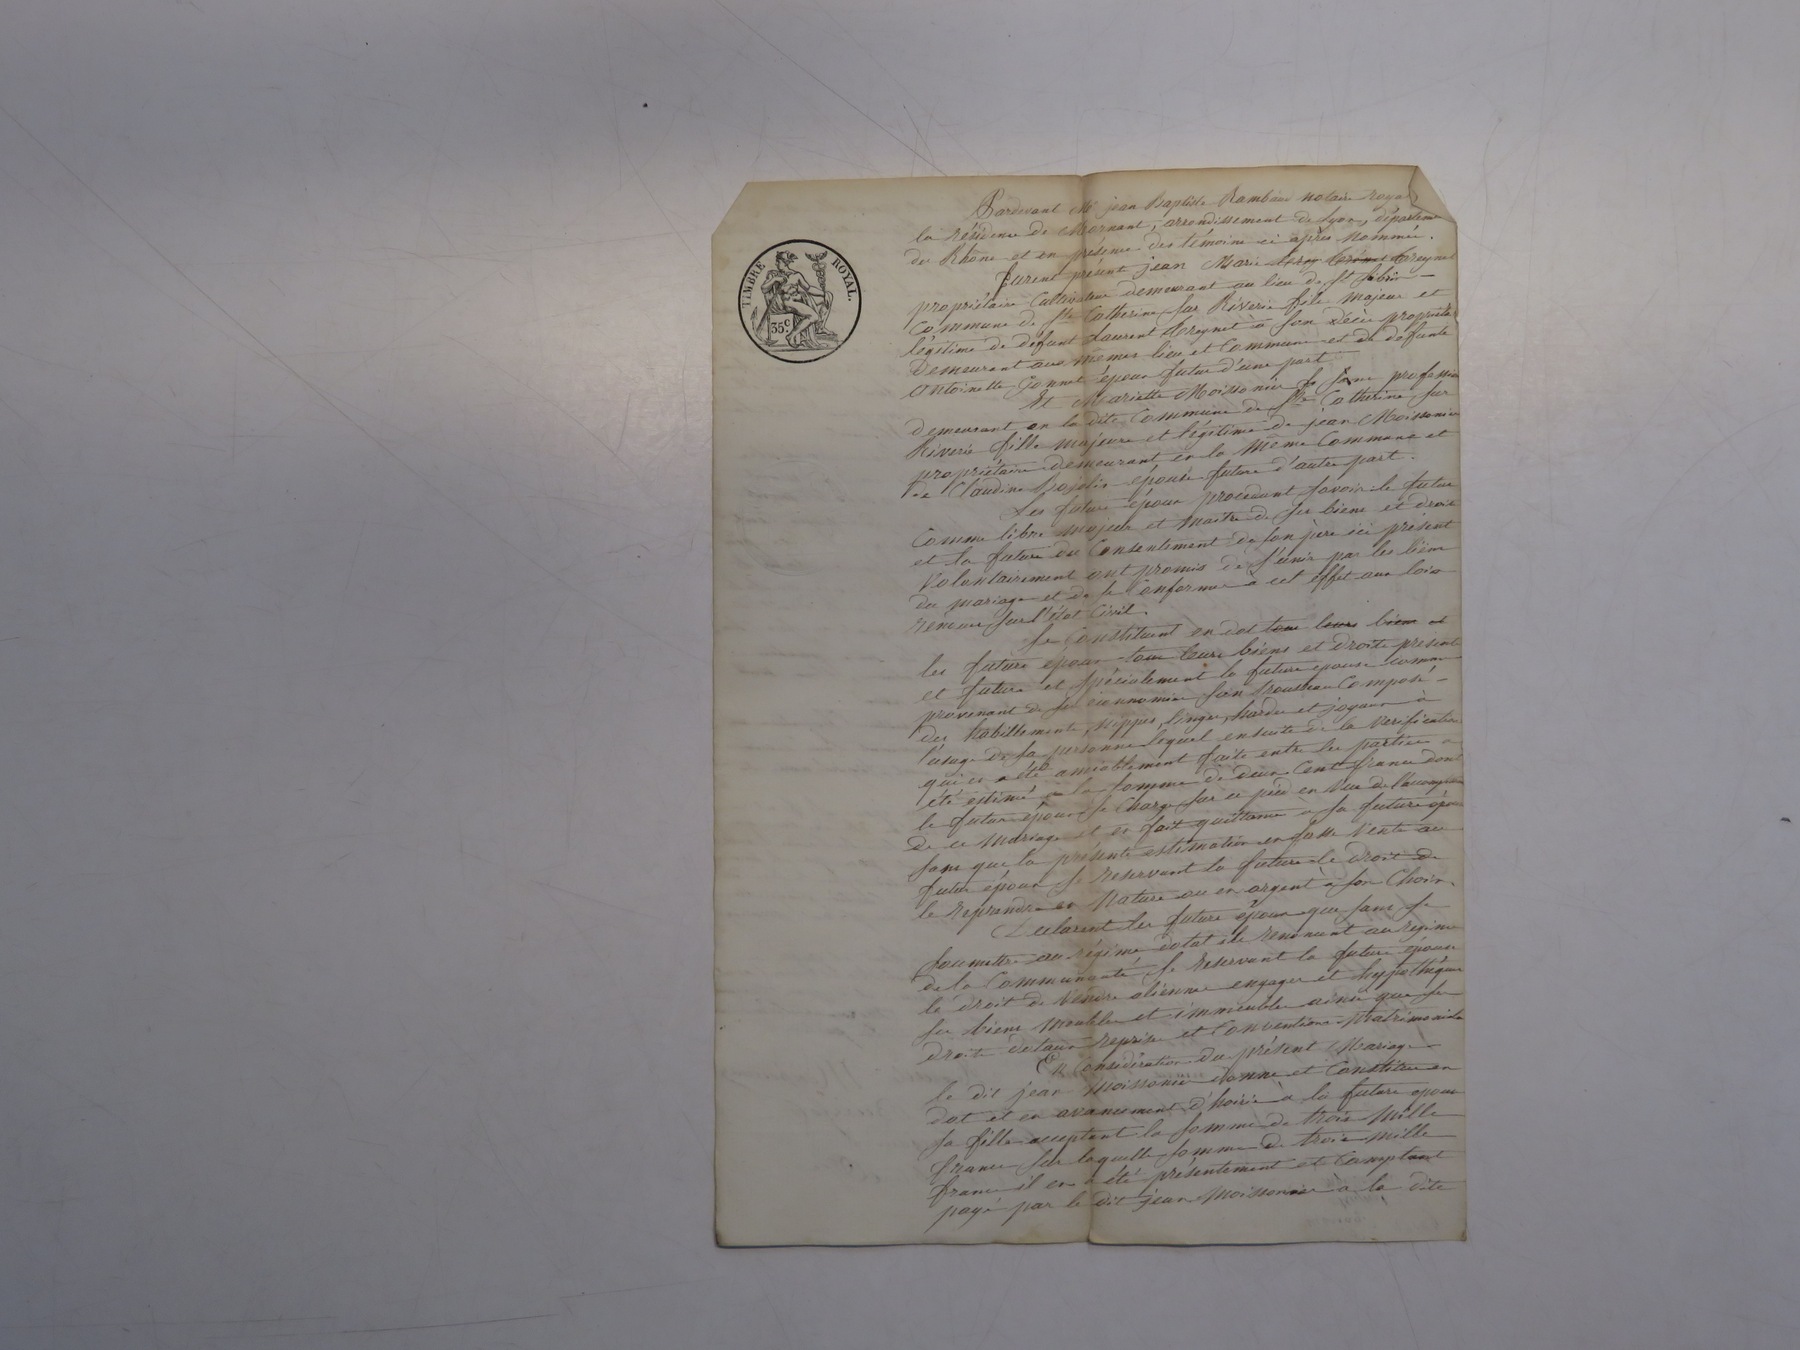 TIMBRE ROYAL.
35 c.
Pardevant Me jean Baptiste Rambaud notaire royal
la résidence de Mornant, arrondissement de Lyon, départeme
du Rhône et en présence des témoins ci après nommés.
furent présent jean Marie
propriétaire Cultivateur demeurant au lieu de St
Commune de Ste Catherine sur Riverie fils majeur et
légitime de défunt Laurent à son décès propriéta
demeurant aux mêmes lieu et Commune et de défunte
antoinette époux futur d'une part
Et Mariette Moissonier sans profession
demeurant en la dite Commune de Ste Catherine sur
Riverie fille majeure et légitime de jean Moissonier
propriétaire demeurant en la même Commune et
de Claudine épouse future d'autre part.
Les futurs époux procédant savoir le futur
Comme libre majeur et maître de ses biens et droits
et la future du Consentement de son père ici présent
Volontairement ont promis de s'unir par les liens
du mariage et de se Conformer à cet effet aux lois
rendues sur l'état Civil.
Se Constituent en dot tous leurs biens et
les futurs époux tous leurs biens et droits présents
et futurs et spécialement la future épouse comme
provenant de ses économies son trousseau Composé
des habillements, nippes, linges, hardes et joyaux à
l'usage de sa personne lequel ensuite de la vérification
qui en a été amiablement faite entre les parties a
été estimé à la somme de deux Cent francs dont
le futur époux se Charge sur ce pied en vue de l'accomp
de ce mariage et en fait quittance à sa future épouse
sans que la présente estimation en fasse vente au
futur époux se réservant la future le droit de
le reprendre en Nature ou en argent à son Choix.
Déclarent les futurs époux que sans se
soumettre au régime dotal ils renoncent au régime
de la Communauté, se réservant la future épouse
le droit de Vendre aliéner engager et hypothéquer
ses biens Meubles et immeubles ainsi que ses
droits dotaux reprises et Conventions Matrimoniales
En Considération du présent Mariage
le dit jean Moissonier donne et Constitue en
dot et en avancement d'hoirie à la future épouse
sa fille acceptant la somme de trois Mille
francs sur laquelle somme de trois mille
francs il en a été présentement et Comptant
payé par le dit jean Moissonier à la dite